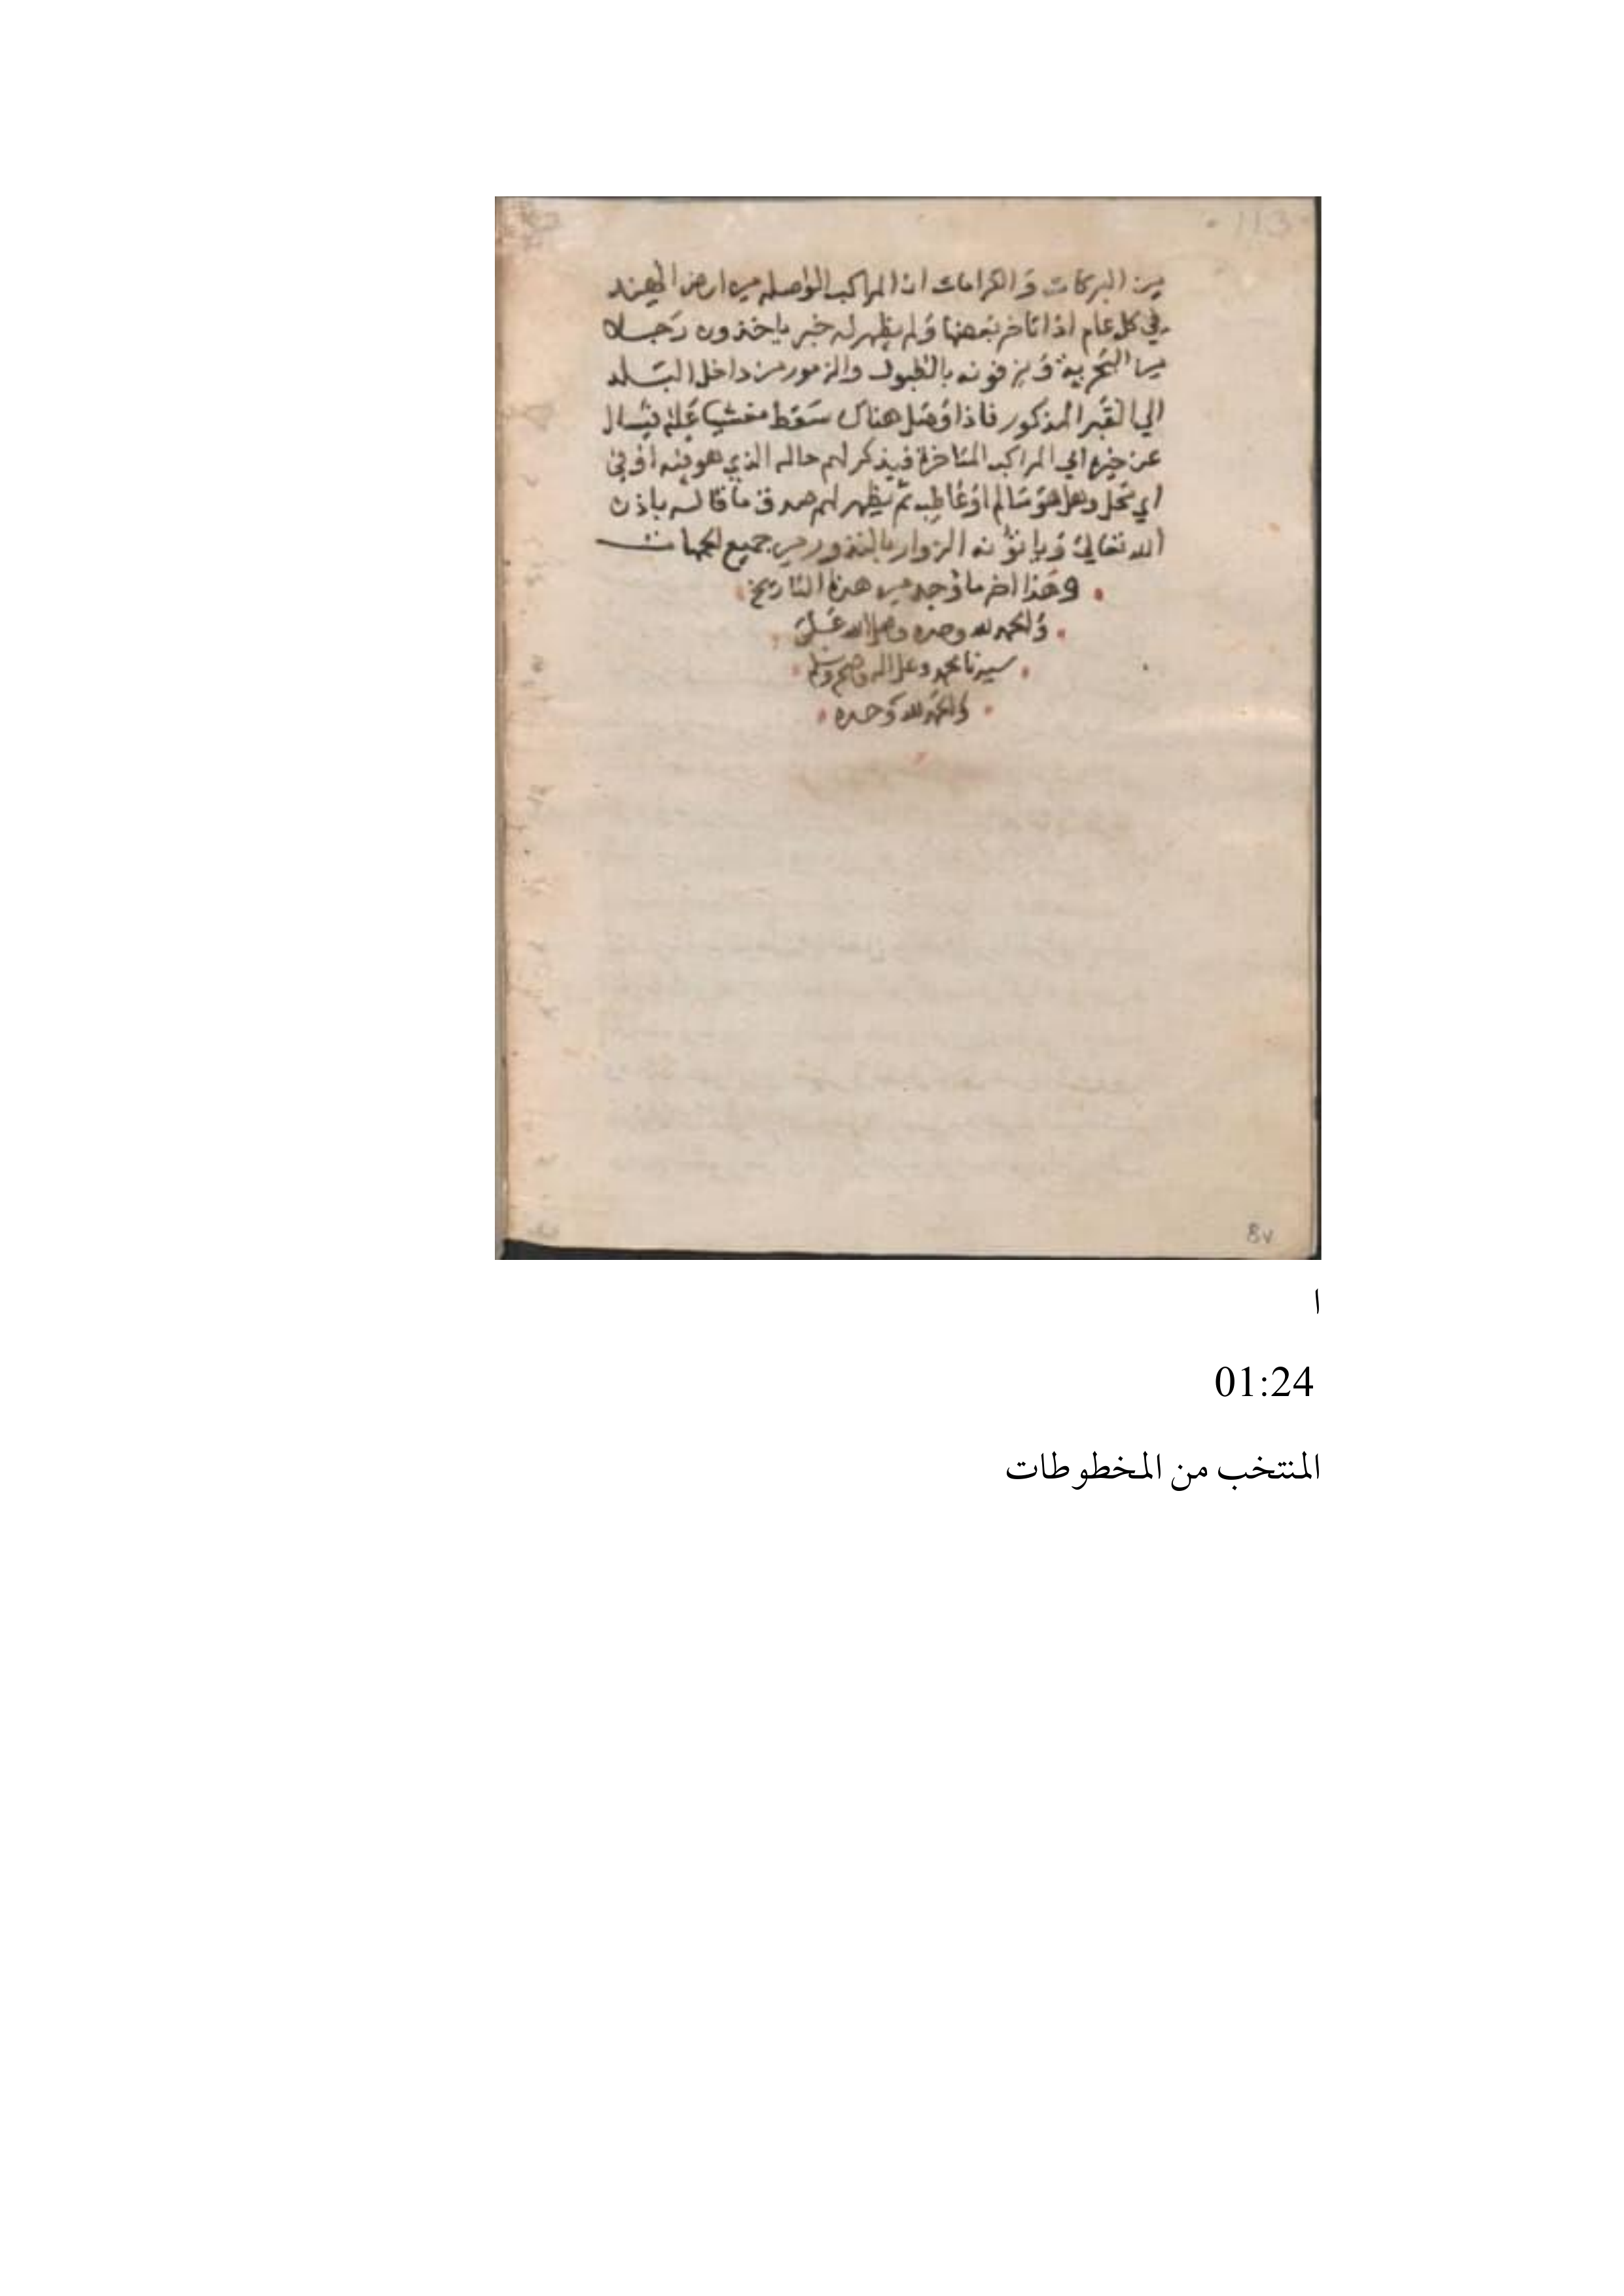 113
من البركات والكرامات ان المراكب الواصله من ارض الهند
في كل عام اذا تاخر بعضها ولم يظهر له خبر ياخذون رجلا
من البحرية ويزفونه بالطبول والزمور من داخل البلد
الي القبر المذكور فاذا وصل هناك سقط مغشيا عليه فيسال
عن خبر المراكب المتاخرة فيذكر لهم حاله الذي هو فيه او في
اي محل وهل هو سالم او عاطب ثم يظهر لهم صدق ما قاله باذن
الله تعالي وياتونه الزوار بالنذور من جميع الجهات
وهذا اخر ما وجد من هذه التاريخ
والحمد لله وحده وصلي الله علي
سيدنا محمد وعلي اله وصحبه وسلم
والحمد لله وحده
8v
ا
01:24
المنتخب من المخطوطات